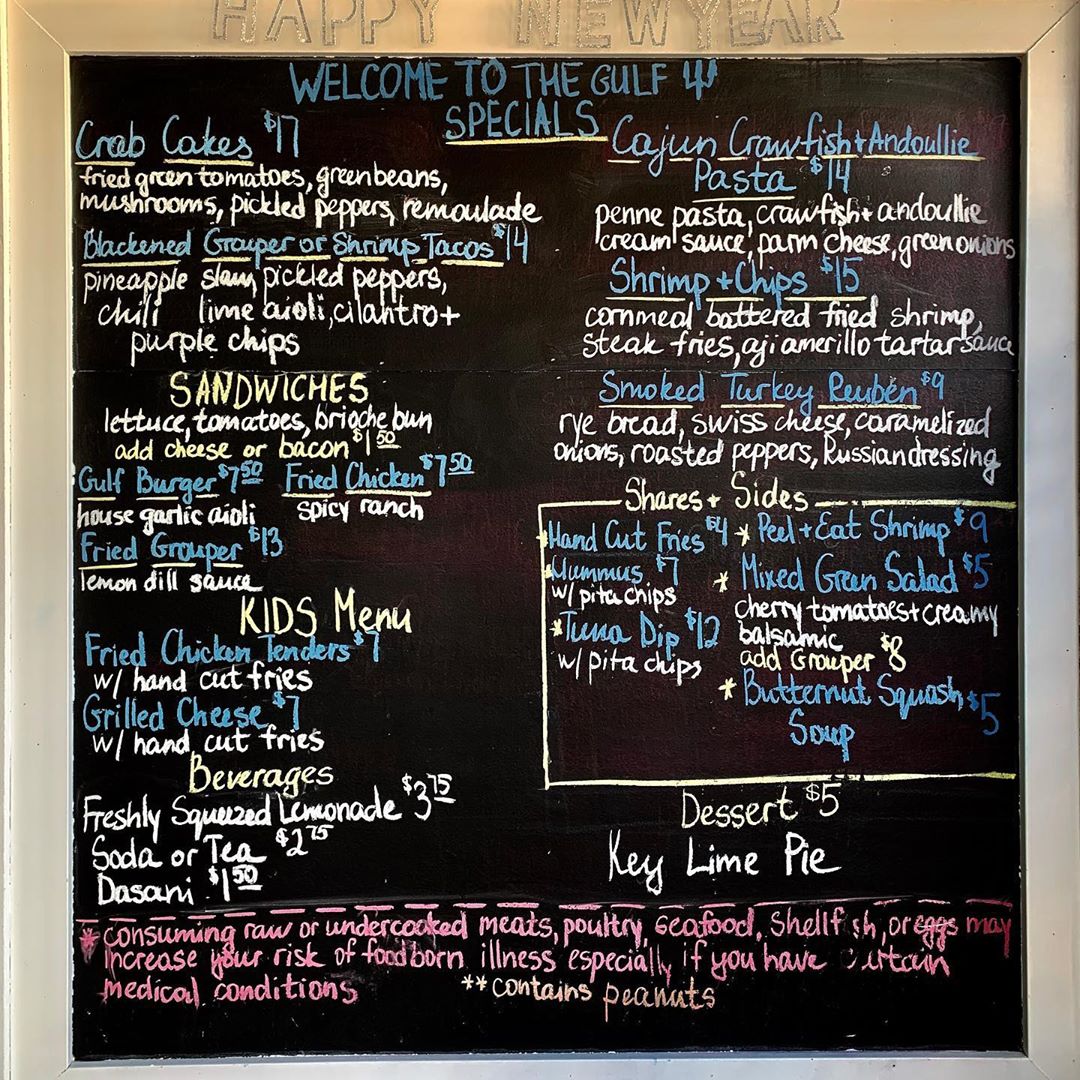 HAPPY NEW YEAR
WELCOME TO THE GULF
SPECIALS
Crab Cakes $17
fried green tomatoes, green beans,
mushrooms, pickled peppers, remoulade
Blackened Grouper or Shrimp Tacos $14
pineapple slaw, pickled peppers,
chili lime aioli, cilantro +
purple chips
SANDWICHES
lettuce, tomatoes, brioche bun
add cheese or bacon $1 50
Gulf Burger $7 50 Fried Chicken $7 50
house garlic aioli spicy ranch
Fried Grouper $13
lemon dill sauce
KIDS Menu
Fried Chicken Tenders $7
w/ hand cut fries
Grilled Cheese $7
w/ hand cut fries
Beverages
Freshly Squeezed Lemonade $3 75
Soda or Tea $2 75
Dasani $1 50
Cajun Crawfish + Andoullie
Pasta $14
penne pasta, crawfish + andoullie
cream sauce, parm cheese, green onions
Shrimp + Chips $15
cornmeal battered fried shrimp,
steak fries, aji amerillo tartar sauce
Smoked Turkey Reuben $9
rye bread, swiss cheese, caramelized
onions, roasted peppers, Russian dressing
Shares + Sides
*Hand Cut Fries $4
*Hummus $7
w/ pita chips
*Tuna Dip $12
w/ pita chips
* Peel + Eat Shrimp $9
* Mixed Green Salad $5
cherry tomatoes + creamy
balsamic
add Grouper $8
* Butternut Squash $5
Soup
Dessert $5
Key Lime Pie
* consuming raw or undercooked meats, poultry, seafood, shellfish, or eggs may
increase your risk of foodborn illness especially if you have certain
medical conditions
**contains peanuts